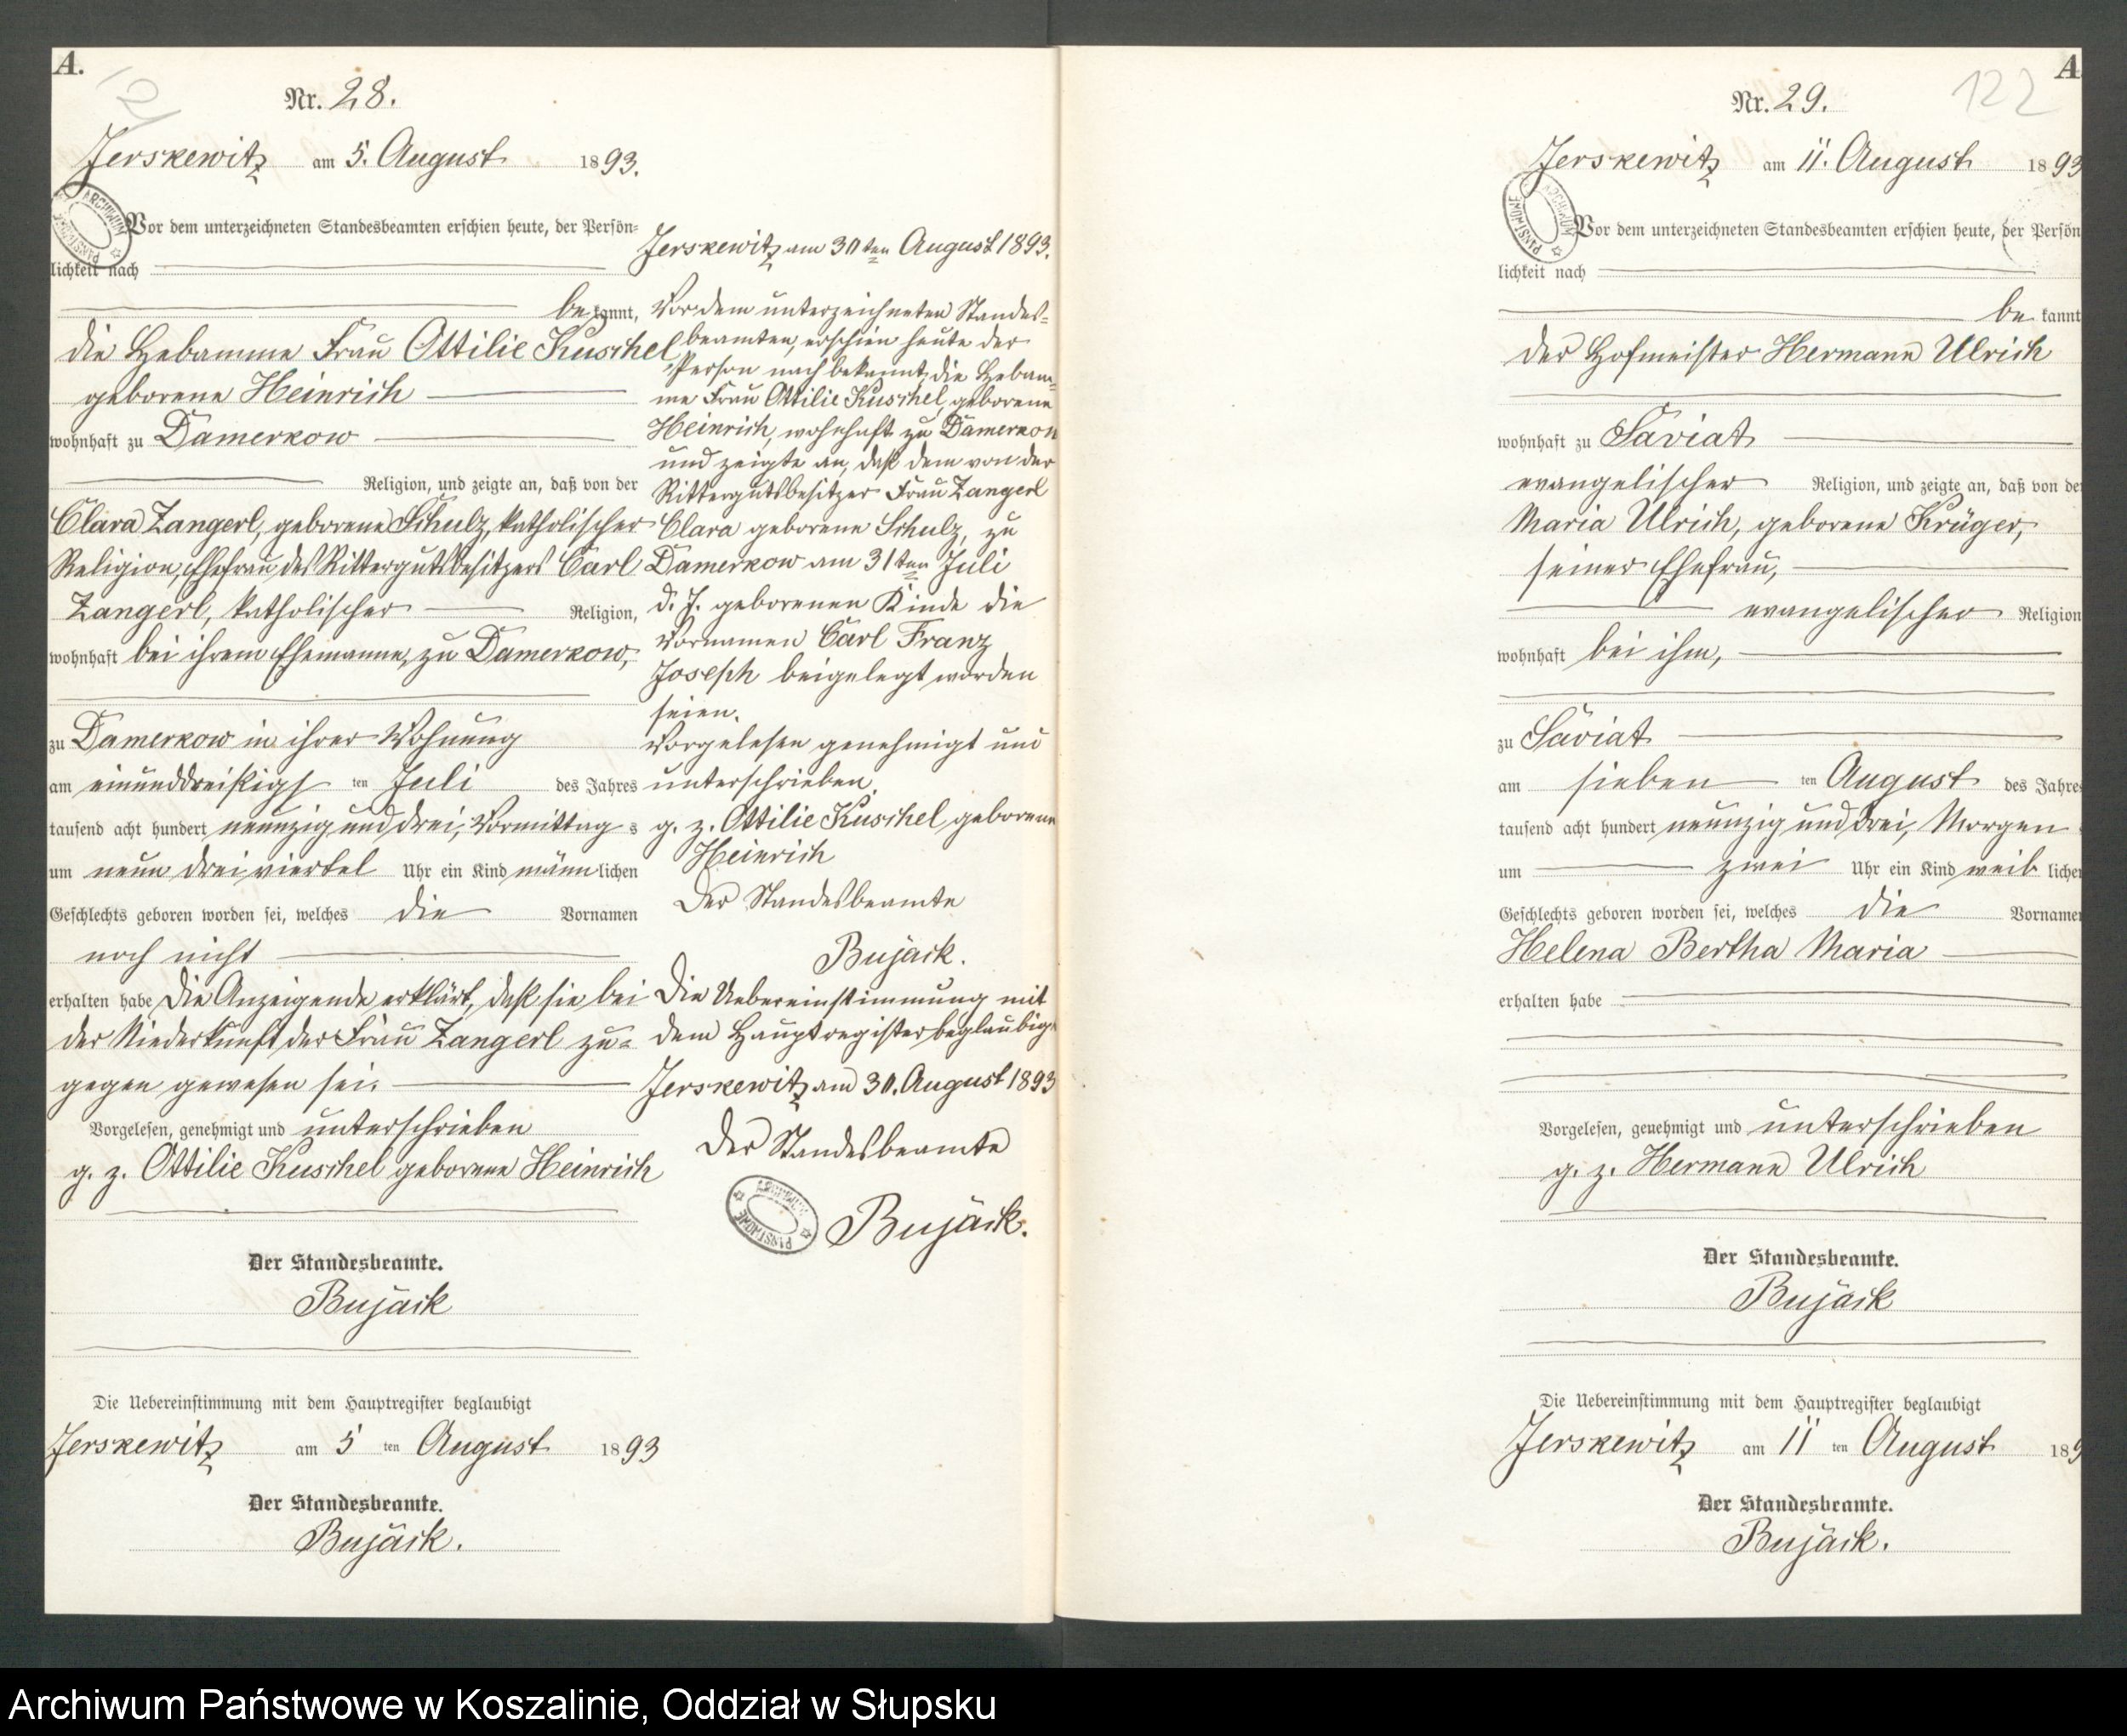 A.
121
Nr. 28.
Jerskewitz am 5. August 1893.
Vor dem unterzeichneten Standesbeamten erschien heute, der Persön-
lichkeit nach
be kannt,
die Hebamme Frau Ottilie Kuschel
geborene Heinrich
wohnhaft zu Damerkow
Religion, und zeigte an, daß von der
Clara Zangerl, geborene Schulz, katholischer
Religion, Ehefrau des Rittergutsbesitzers Carl
Zangerl, katholischer Religion,
wohnhaft bei ihrem Ehemanne, zu Damerkow,
zu Damerkow in ihrer Wohnung
am einunddreißigs ten Juli des Jahres
tausend acht hundert neunzig und drei, Vormittag s
um neun dreiviertel Uhr ein Kind männ lichen
Geschlechts geboren worden sei, welches die Vornamen
noch nicht
erhalten habe Die Anzeigende erklärt, daß sie bei
der Niederkunft der Frau Zangerl zu-
gegen gewesen sei.
Vorgelesen, genehmigt und unterschrieben
g. z. Ottilie Kuschel geborene Heinrich
Der Standesbeamte.
Bujack
Die Uebereinstimmung mit dem Hauptregister beglaubigt
Jerskewitz am 5 ten August 1893
Der Standesbeamte.
Bujack.
Jerskewitz am 30ten August 1893.
Vor dem unterzeichneten Standes-
beamten, erschien heute der
Person nach bekannt, die Hebam-
me Frau Ottilie Kuschel, geborene
Heinrich, wohnhaft zu Damerkow
und zeigte an, daß dem von der
Rittergutsbesitzer Frau Zangerl
Clara geborene Schulz, zu
Damerkow am 31ten Juli
d. J. geborenen Kinde die
Vornamen Carl Franz
Joseph beigelegt worden
seien.
Vorgelesen genehmigt und
unterschrieben.
g. z. Ottilie Kuschel geborene
Heinrich
Der Standesbeamte
Bujack.
Die Uebereinstimmung mit
dem Hauptregister beglaubigt
Jerskewitz am 30. August 1893
Der Standesbeamte
Bujack.
ARCHIWUM PAŃSTWOWE
A
122
Nr. 29.
Jerskewitz am 11. August 1893
Vor dem unterzeichneten Standesbeamten erschien heute, der Persön
lichkeit nach
be kannt
der Hofmeister Hermann Ulrich
wohnhaft zu Saviat
evangelischer Religion, und zeigte an, daß von der
Maria Ulrich, geborene Krüger,
seiner Ehefrau,
evangelischer Religion
wohnhaft bei ihm,
zu Saviat
am sieben ten August des Jahres
tausend acht hundert neunzig und drei, Morgen
um zwei Uhr ein Kind weib lichen
Geschlechts geboren worden sei, welches die Vornamen
Helena Bertha Maria
erhalten habe
Vorgelesen, genehmigt und unterschrieben
g. z. Hermann Ulrich
Der Standesbeamte.
Bujack
Die Uebereinstimmung mit dem Hauptregister beglaubigt
Jerskewitz am 11 ten August 189
Der Standesbeamte.
Bujack.
Archiwum Państwowe w Koszalinie, Oddział w Słupsku